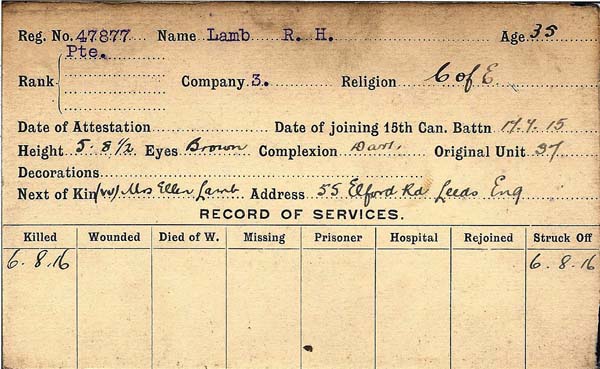 Reg. No. 47877 Name Lamb R. H. Age 35
Pte.
Rank Company 3. Religion C of E.
Date of Attestation Date of joining 15th Can. Battn 17.7.15
Height 5. 8 1/2 Eyes Brown Complexion Dark. Original Unit 37
Decorations
Next of Kin (W) Mrs Ellen Lamb Address 55 Elford Rd Leeds Eng
RECORD OF SERVICES.
Killed Wounded Died of W. Missing Prisoner Hospital Rejoined Struck Off
6.8.16 6.8.16